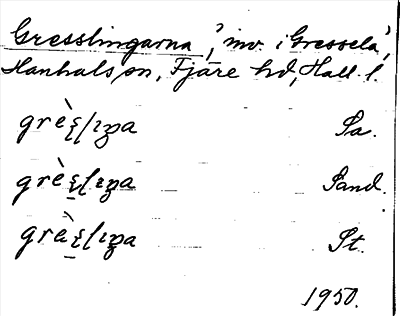 Gresslingarna, inv. i 'Gressela',
Hanhals sn, Fjäre hd, Hall. l.
Sa.
Sand.
St.
1950.